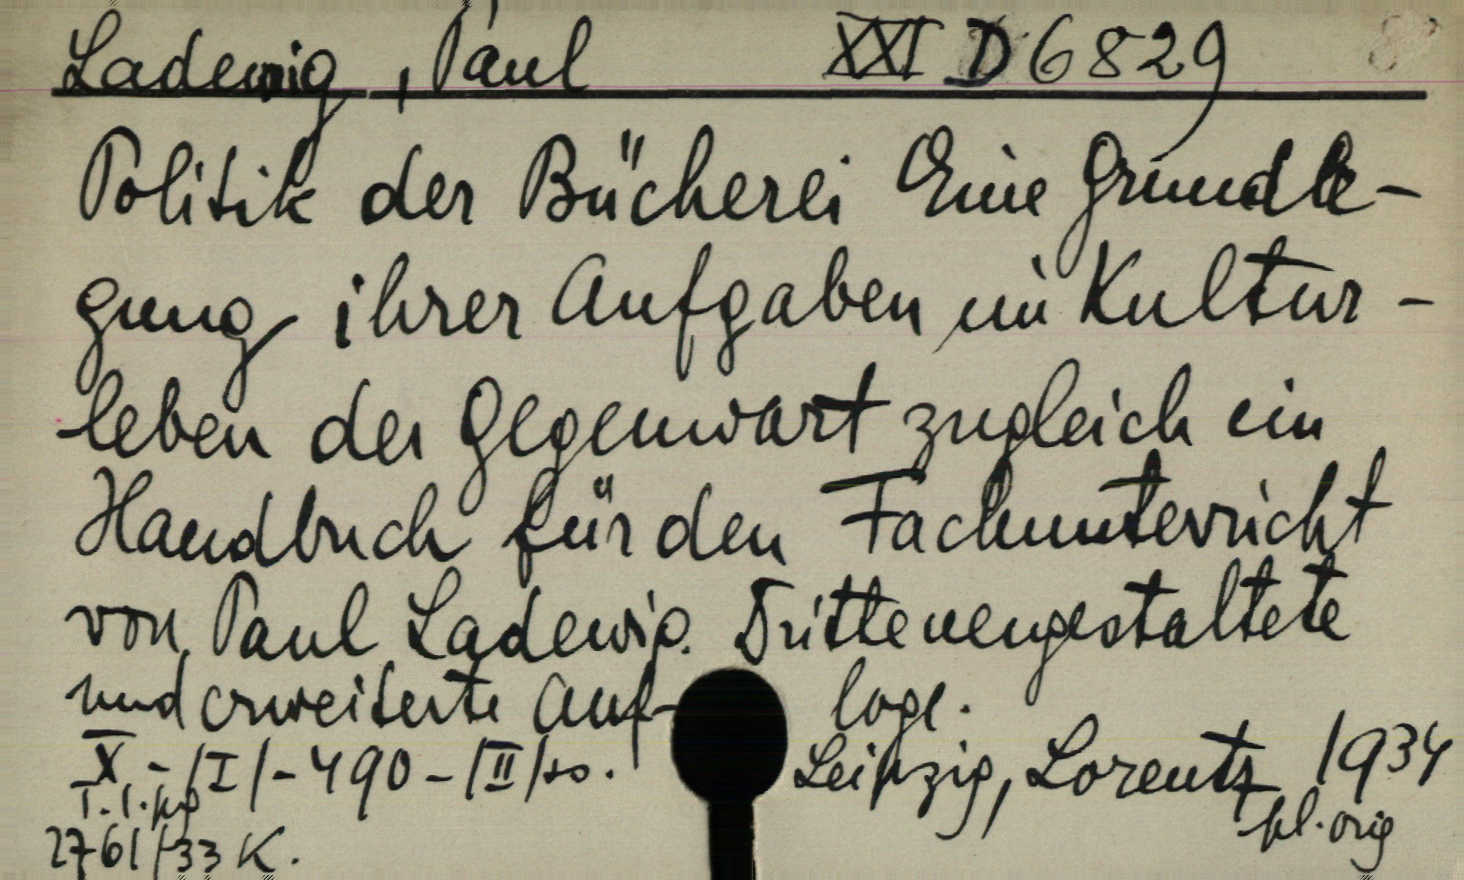 Ladewig, Paul XXI D 6829
Politik der Bücherei Eine Grundle-
gung ihrer Aufgaben im Kultur-
leben der Gegenwart zugleich ein
Handbuch für den Fachunterricht
von Paul Ladewig. Dritte neugestaltete
und erweiterte Auf- lage.
X - /I/ - 490 - /II/ so. Leipzig, Lorentz 1934
pl. orig
2761/33 K.